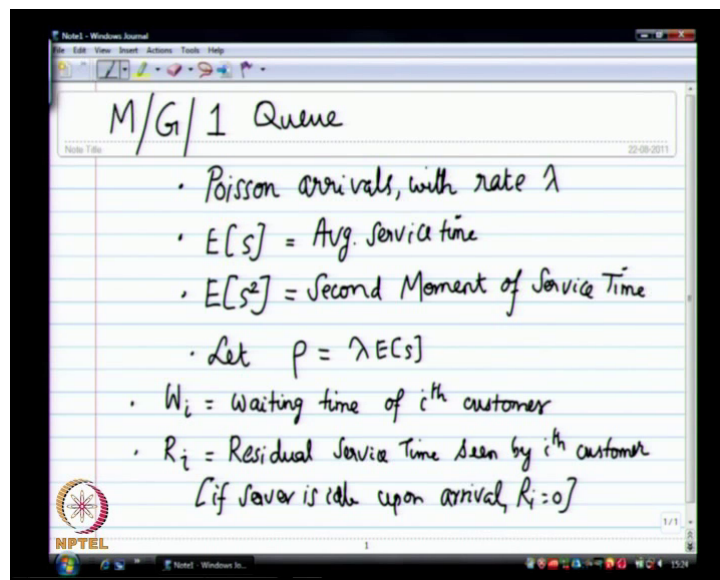 Note1 - Windows Journal
File Edit View Insert Actions Tools Help
M/G/1 Queue
Note Title
22-08-2011
· Poisson arrivals, with rate λ
· E[S] = Avg. Service time
· E[S²] = Second Moment of Service Time
· Let ρ = λE[S]
· Wᵢ = Waiting time of iᵗʰ customer
· Rᵢ = Residual Service Time seen by iᵗʰ customer
[if server is idle upon arrival, Rᵢ = 0]
1/1
NPTEL
1
Note1 - Windows Jo...
15:24